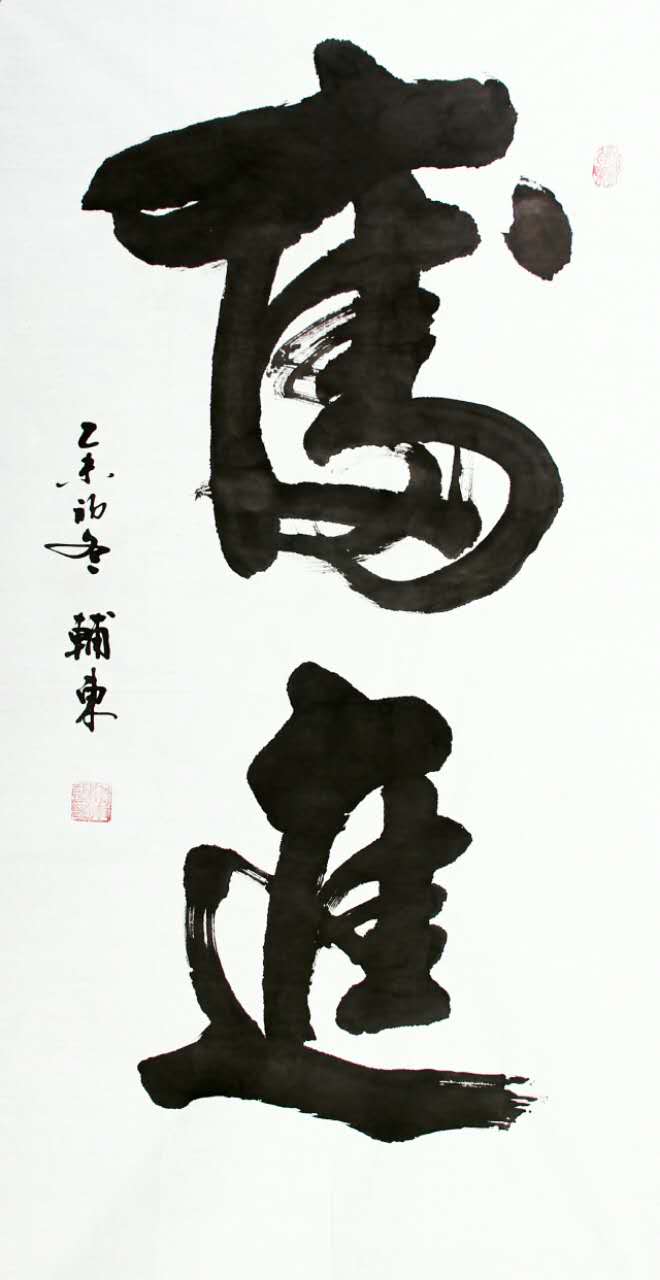 奮進
乙未初冬 輔東